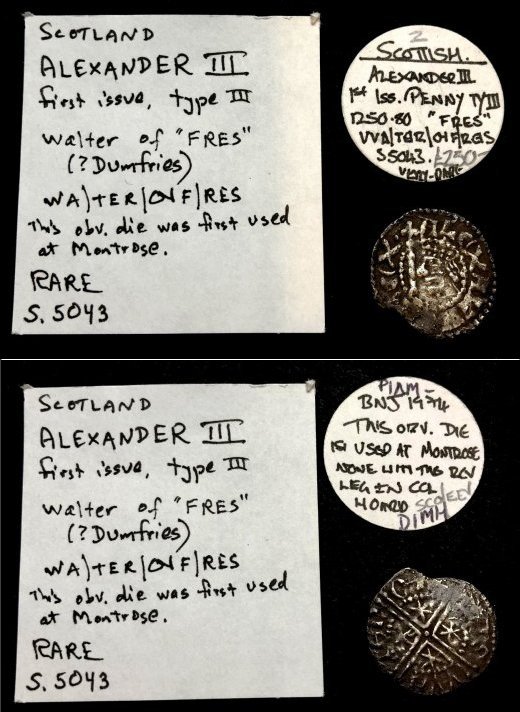 SCOTLAND
ALEXANDER III
first issue, type III
Walter of "FRES"
(?Dumfries)
WA/TER/ON F/RES
This obv. die was first used
at Montrose.
RARE
S. 5043
2
SCOTTISH.
ALEXANDER III
1st Iss. PENNY TY III
1250-80 "FRES"
WA/TER/OHF/RES
S5043. £250-
VERY RARE
SCOTLAND
ALEXANDER III
first issue, type III
Walter of "FRES"
(?Dumfries)
WA/TER/ON F/RES
This obv. die was first used
at Montrose.
RARE
S. 5043
BNJ 1974
THIS OBV. DIE
1st USED AT MONTROSE
NONE WITH THIS REV
LEG IN COL
HOARD
DIMM